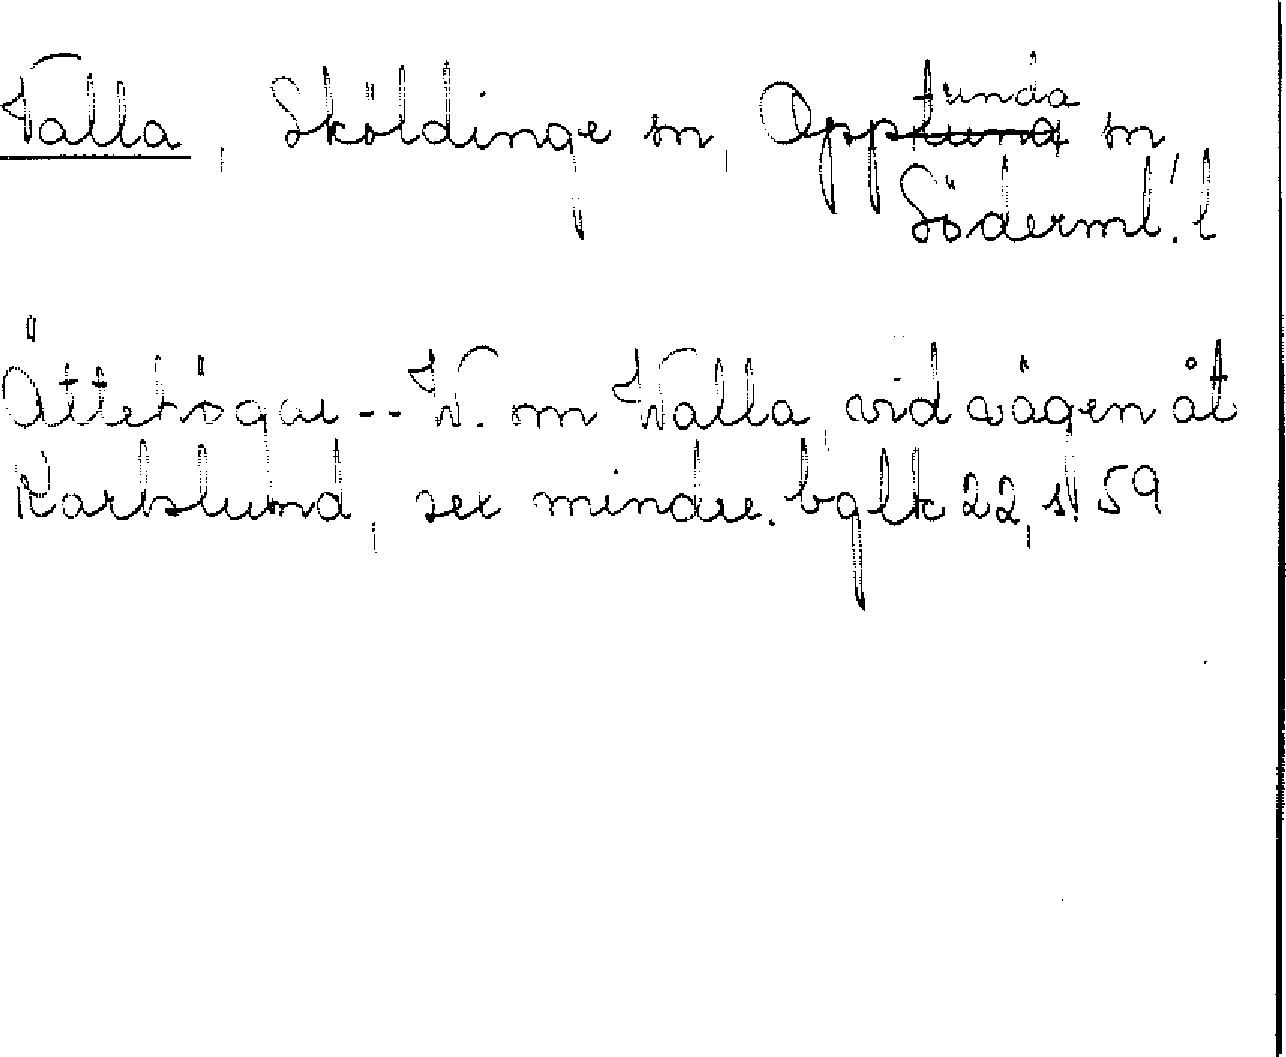 Valla, Sköldinge sn, Opptunda sn,
Söderml. l
Ättehögar -- V. om Valla, vid vägen åt
Karlslund, sex mindre. bglk 22, s. 59